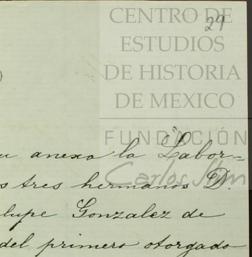 29
CENTRO DE
ESTUDIOS
DE HISTORIA
DE MEXICO
FUNDACIÓN
Carlos Slim
anexa la Labor=
tres hermanos D.
lupe Gonzalez de
del primero otorgado